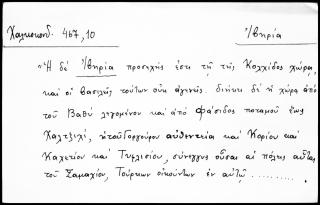 Χαλκοκονδ. 467,10
Ἰβηρία
"Ἡ δὲ Ἰβηρία προσεχής ἐστι τῇ τῆς Κολχίδος χώρᾳ,
καὶ οἱ βασιλῆς τούτων οὐκ ἀγενής. διήκει δὲ ἡ χώρα ἀπὸ
τοῦ Βαθύ λεγομένου καὶ ἀπὸ Φάσιδος ποταμοῦ ἕως
Χαλτζιχί, ἡ τοῦ Γοργούρου αὐθεντεία καὶ Κορίου καὶ
Καχετίου καὶ Τυφλισίου, σύνεγγυς οὖσαι αἱ πόλεις αὗται
τοῦ Σαμαχίου, Τούρκων οἰκούντων ἐν αὐτῷ ..........